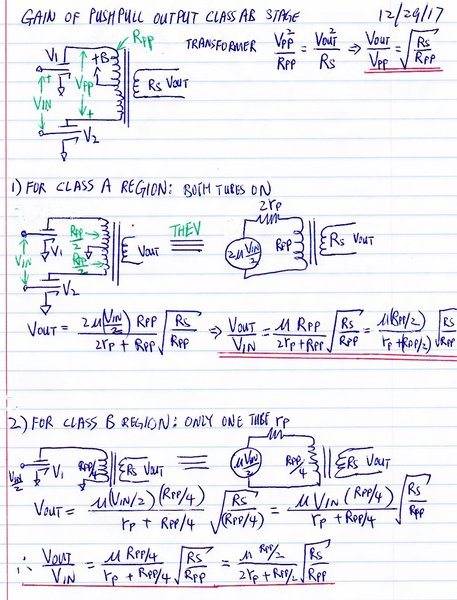 GAIN OF PUSHPULL OUTPUT CLASS AB STAGE 12/29/17
V1 +B RPP
VIN VPP RS VOUT
V2
TRANSFORMER VPP²/RPP = VOUT²/RS ⇒ VOUT/VPP = √(RS/RPP)
1) FOR CLASS A REGION: BOTH TUBES ON
VIN V1 RPP/2 RPP/2 VOUT V2
THEV
2rp 2μVIN/2 RPP RS VOUT
VOUT = 2μ(VIN/2) RPP / 2rp + RPP √(RS/RPP) ⇒ VOUT/VIN = μ RPP / 2rp + RPP √(RS/RPP) = μ(RPP/2) / rp + (RPP/2) √(RS/RPP)
2) FOR CLASS B REGION: ONLY ONE TUBE
VIN/2 V1 RPP/4 RS VOUT
rp μVIN/2 RPP/4 RS VOUT
VOUT = μ(VIN/2)(RPP/4) / rp + RPP/4 √(RS/(RPP/4)) = μ VIN (RPP/4) / rp + RPP/4 √(RS/RPP)
∴ VOUT/VIN = μ RPP/4 / rp + RPP/4 √(RS/RPP) = μ RPP/2 / 2rp + RPP/2 √(RS/RPP)